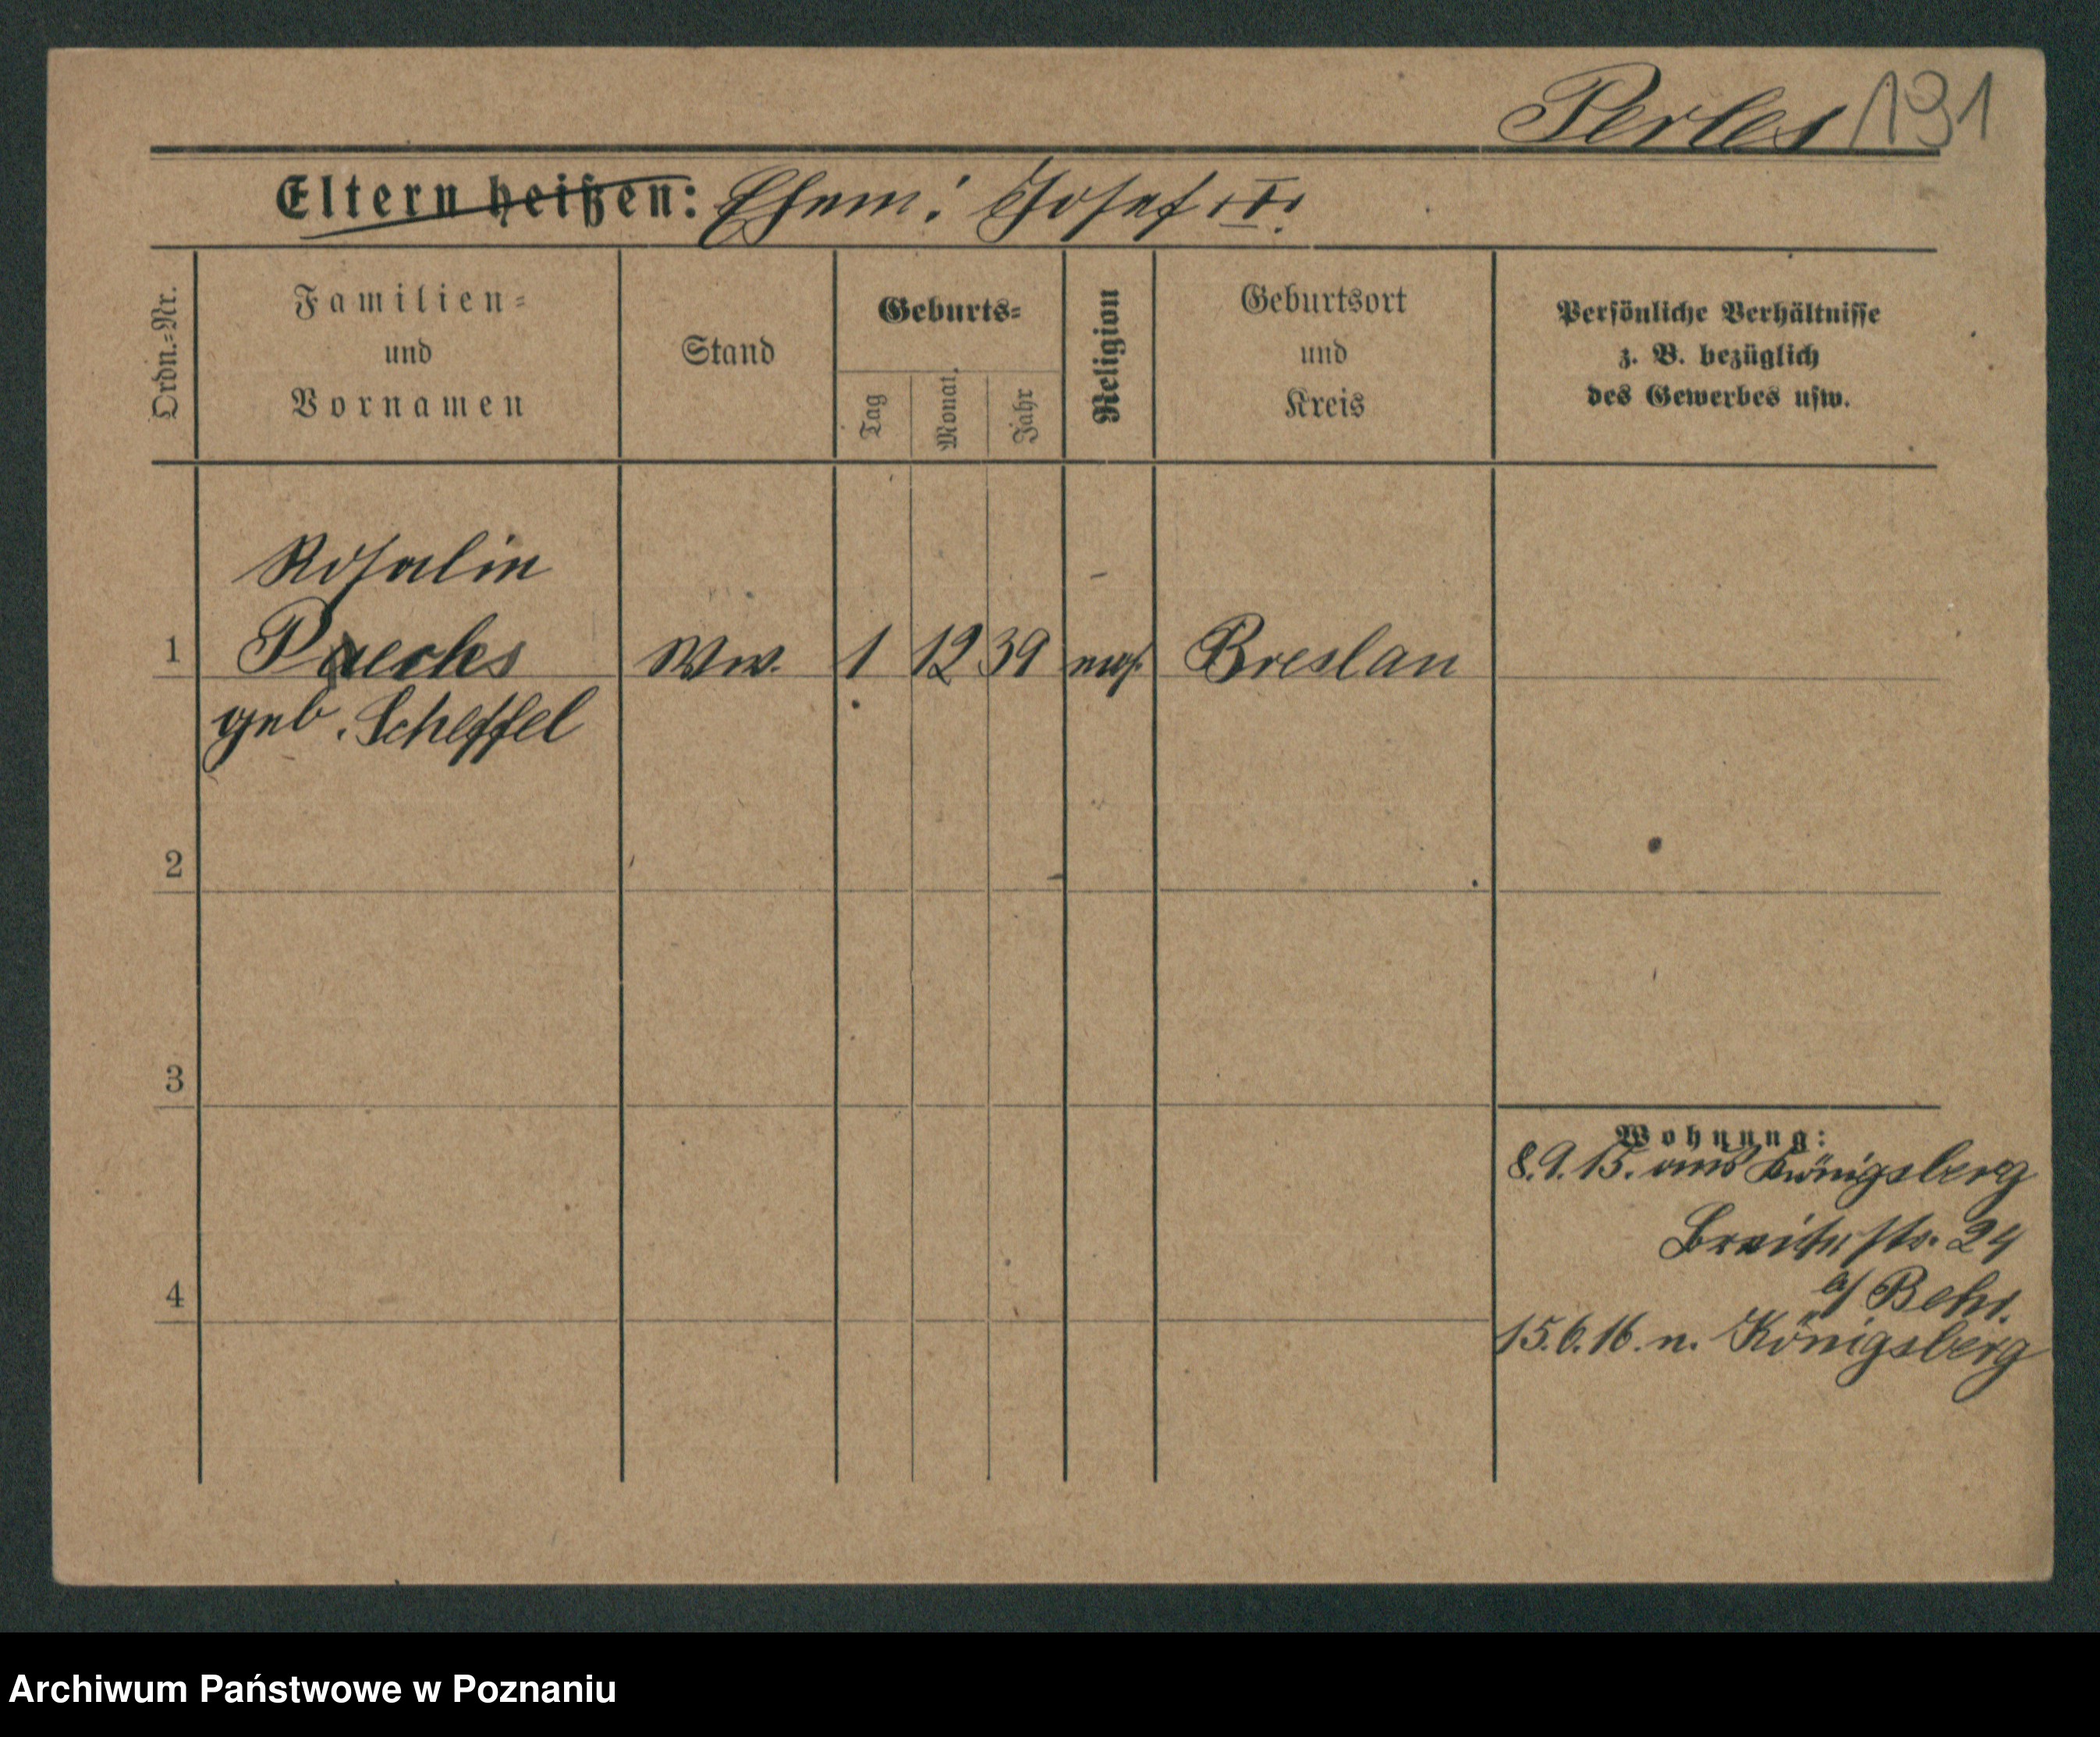 Perles 191
Eltern heißen: Ehem: Josef
Ordn.=Nr.
Familien=
und
Vornamen
Stand
Geburts=
Tag
Monat
Jahr
Religion
Geburtsort
und
Kreis
Persönliche Verhältnisse
z. B. bezüglich
des Gewerbes usw.
Rosalie
1 Paechs Ww. 1 12 39 mos. Breslau
geb. Scheffel
2
3
4
Wohnung:
8.9.15. aus Königsberg
Breitestr. 24
b/ Behr.
15.6.16. n. Königsberg
Archiwum Państwowe w Poznaniu